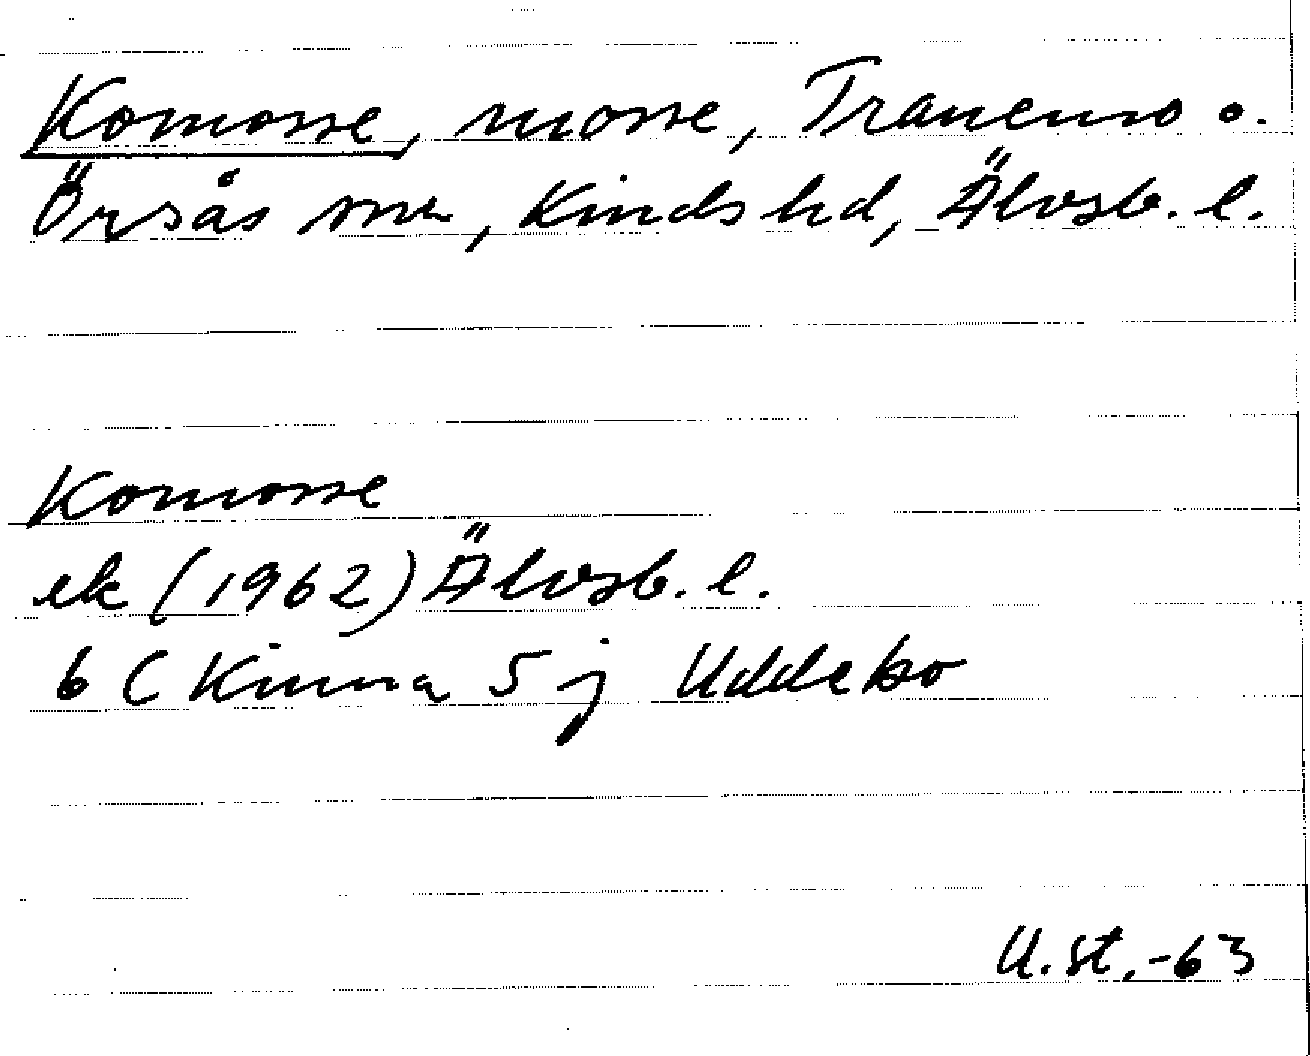 Komosse, mosse, Tranemo o.
Örsås snr, Kinds hd, Älvsb. l.
Komosse
ek (1962) Älvsb. l.
6 C Kinna 5 j Uddebo
U.st. -63